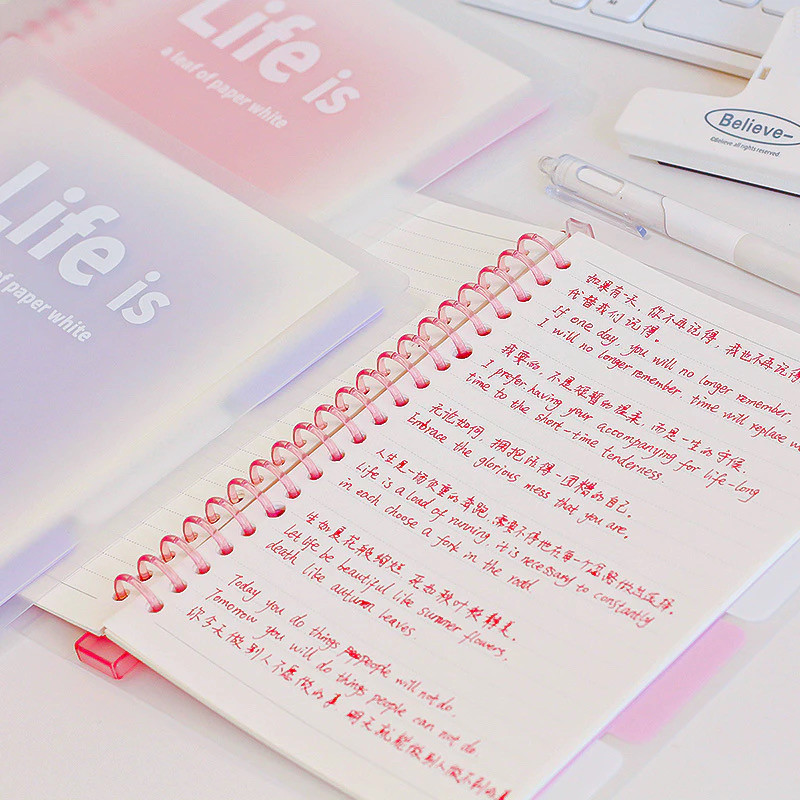 Life is
a leaf of paper white
Life is
of paper white
Believe-
©Believe all rights reserved.
如果有一天，你不再记得，我也不再记得
代替我们记得。
If one day, you will no longer remember,
I will no longer remember. time will replace
我要的，不是短暂的温柔，而是一生的守候。
I prefer having your accompanying for life-long
time to the short-time tenderness.
无论如何，拥抱活得一团糟的自己。
Embrace the glorious mess that you are.
人生是一场负重的奔跑，需要不停地在每一个路口做出选择。
Life is a load of running, it is necessary to constantly
in each choose a fork in the road
生如夏花般绚烂，死如秋叶般静美。
Let life be beautiful like summer flowers,
death like autumn leaves.
Today you do things people will not do.
Tomorrow you will do things people can not do.
你今天做别人不愿做的事，明天就能做别人做不到的事